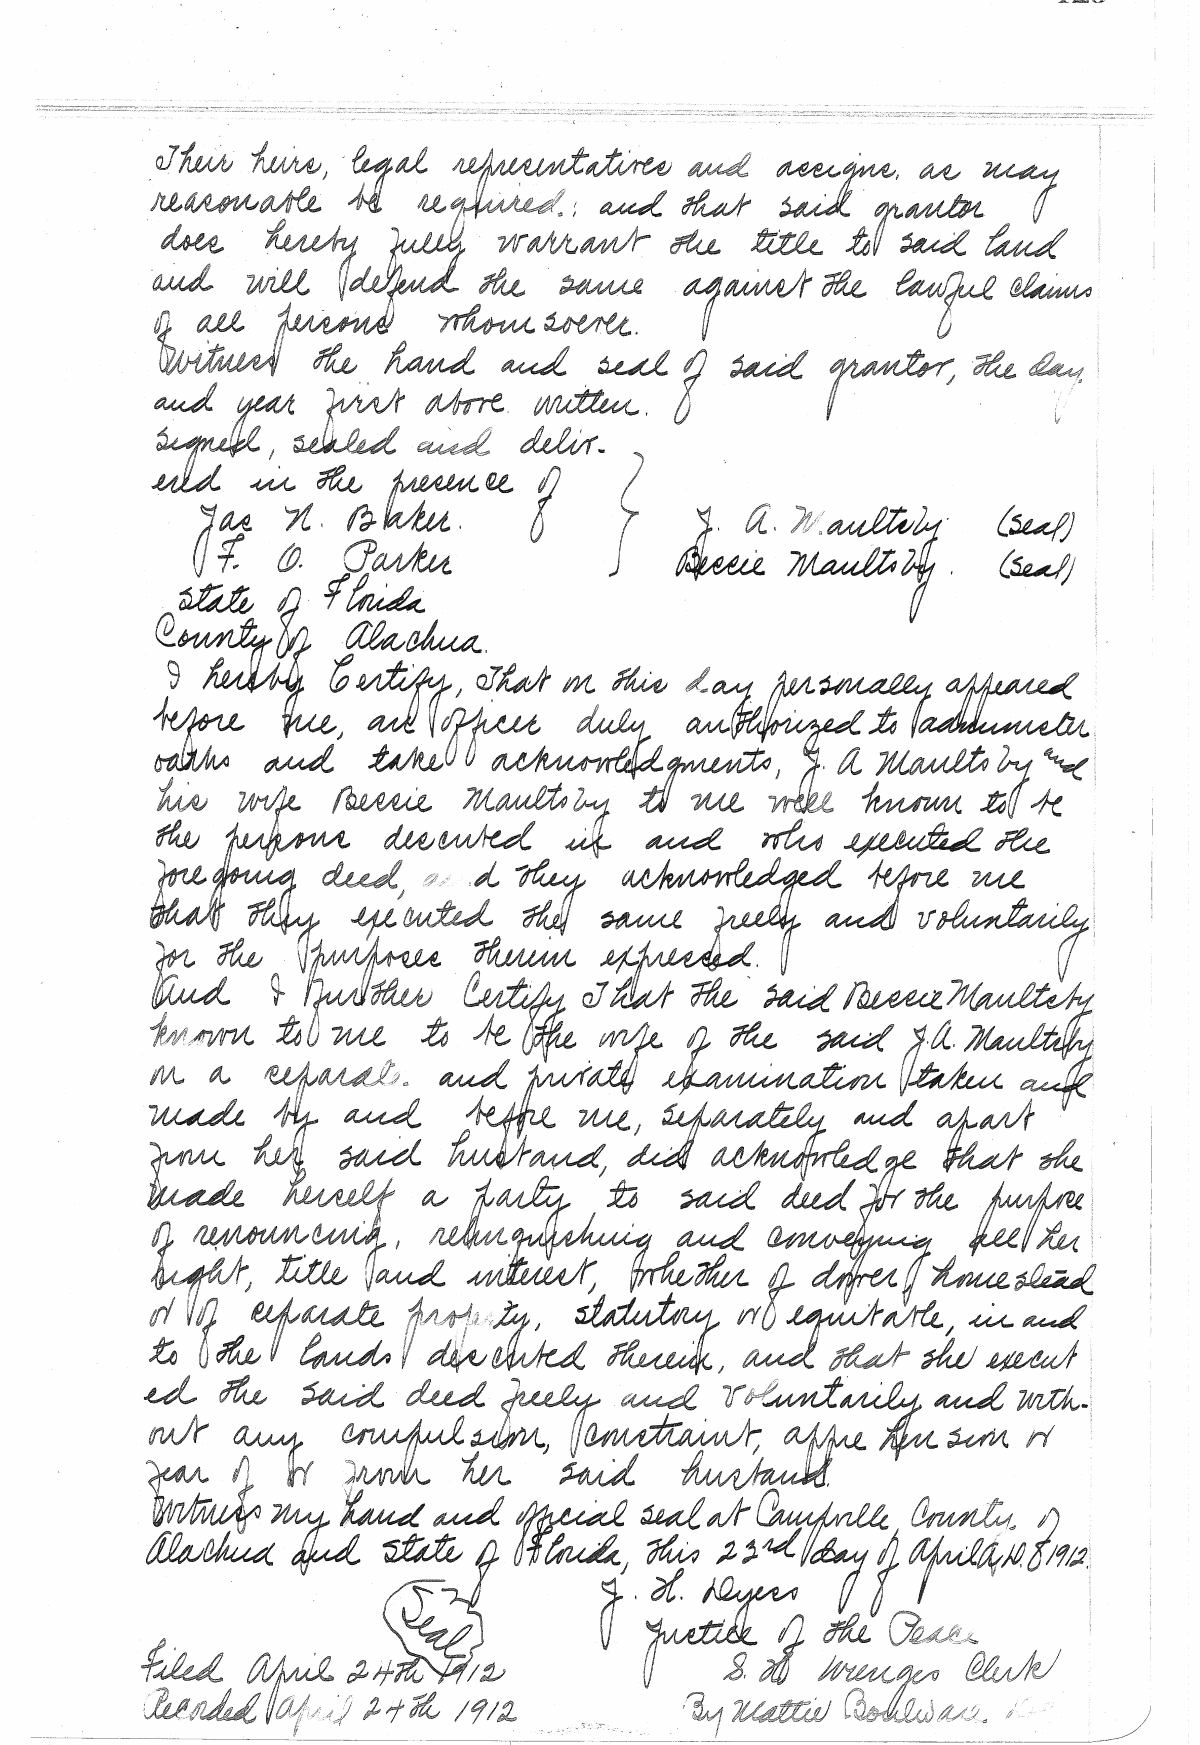 Their heirs, legal representatives and assigns, as may
reasonable be required.; and that said grantor
does hereby fully warrant the title to said land
and will defend the same against the lawful claims
of all persons whomsoever.
Witness the hand and seal of said grantor, the day
and year first above written.
Signed, sealed and deliv-
ered in the presence of
Jas N. Baker. J. A. Maultsby (Seal)
F. O. Parker Bessie Maultsby. (Seal)
State of Florida
County of Alachua.
I hereby Certify, That on this day personally appeared
before me, an officer duly authorized to administer
oaths and take acknowledgments, J. A Maultsby and
his wife Bessie Maultsby to me well known to be
the persons described in and who executed the
foregoing deed, and they acknowledged before me
that they executed the same freely and voluntarily
for the purposes therein expressed.
And I Further Certify That the said Bessie Maultsby
known to me to be the wife of the said J.A. Maultsby
on a separate and private examination taken and
made by and before me, separately and apart
from her said husband, did acknowledge that she
made herself a party to said deed for the purpose
of renouncing, relinquishing and conveying all her
right, title and interest, whether of dower, homestead
or of separate property, statutory or equitable, in and
to the lands described therein, and that she execut
ed the said deed freely and voluntarily and with-
out any compulsion, constraint, apprehension or
fear of or from her said husband.
Witness my hand and official seal at Campville, County of
Alachua and State of Florida, this 23rd day of April A.D. 1912.
Seal J. H. Dyess
Justice of the Peace
Filed April 24th 1912 S. H. Wienges Clerk
Recorded April 24th 1912 By Mattie Boulware.